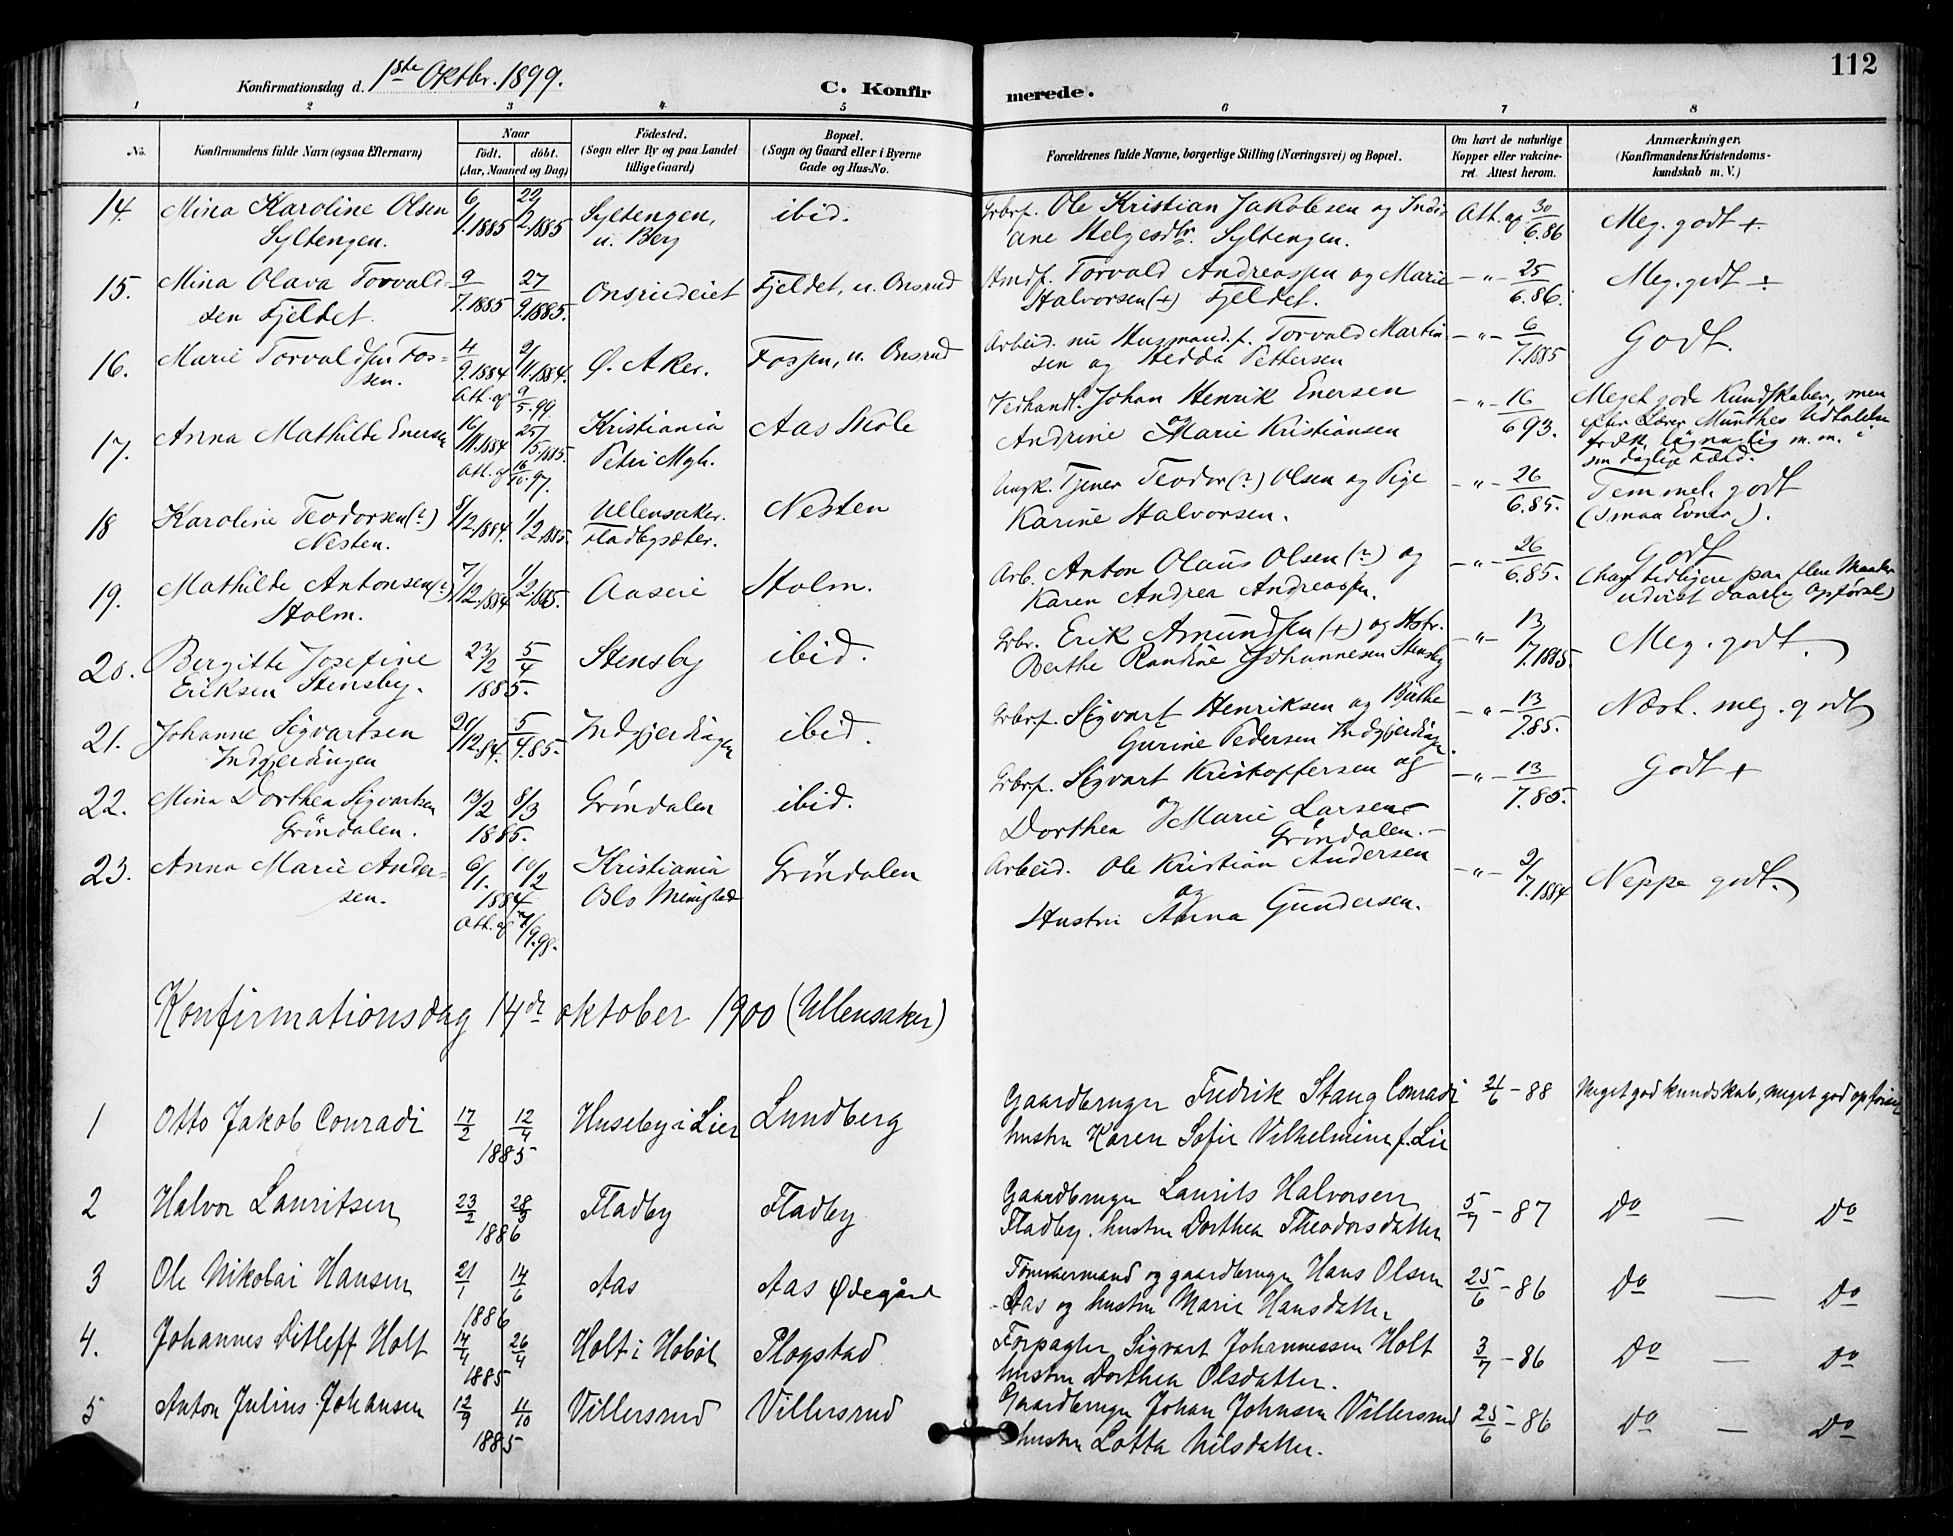 112
Konfirmationsdag d. 1ste Oktbr. 1899.
C. Konfirmerede.
1 2 3 4 5 6 7 8
No. Konfirmandens fulde Navn (ogsaa Efternavn)
Naar
født. døbt.
(Aar, Maaned og Dag)
Fødested.
(Sogn eller By og paa Landet
tillige Gaard)
Bopæl.
(Sogn og Gaard eller i Byerne
Gade og Hus-No.
Forældrenes fulde Navne, borgerlige Stilling (Næringsvei) og Bopæl.
Om havt de naturlige
Kopper eller vakcine-
ret. Attest herom.
Anmærkninger.
(Konfirmandens Kristendoms-
kundskab m. V.)
14. Mina Karoline Olsen 6/1.1885 22/2.1885 Syltengen, ibid. Grbrf. Ole Kristian Jakobsen og Indi- Att. af 30/6.86 Meg. godt +
Syltengen. u. Berg ane Helgesdtr. Syltengen.
15. Mina Olava Torvald- 9/7.1885 27/9.1885. Onsrudeiet Fjeldet, u. Onsrud Hmdf. Torvald Andreassen og Marie -"- 25/6.86. Meg. godt +
sen Fjeldet. Halvorsen (+) Fjeldet.
16. Marie Torvaldsen Fos- 4/9.1884 2/11.1884. Ø. Aker. Fossen, u. Onsrud Arbeid. nu Husmand. f. Torvald Martin- -"- 6/7.1885 Godt.
sen. Att. af 9/5.99 sen og Hedda Pettersen
17. Anna Mathilde Enersen 16/11.1884 25/5.1885. Kristiania Aas Skole Vedhandl. Johan Henrik Enersen -"- 16/6 93. Meget gode Kundskaber, men
Att. af 16/10.97. Petri Mgh. og Andrine Marie Kristiansen efter Lærer Munthes Udtalelse
fræk, løgnagtig m. m. i
sin daglige Færd.
18 Karoline Teodorsen (?) 8/12.1884. 1/2.1885. Ullensaker. Nesten Ungk. Tjener Teodor (?) Olsen og Pige -"- 26/6.85. Temmel. godt
Nesten. Fladbysæter. Karine Halvorsen. (Smaa Evner).
19. Mathilde Antonsen (?) 7/12.1884 1/2.1885. Aaseie Holm. Arb. Anton Olaus Olsen (?) og -"- 26/6.85. Godt
Holm. Karen Andrea Andreassen. (har tidligere paa flere Maader
udvist daarlig Opførsel)
20. Bergitte Josefine 23/2 5/4 Stensby ibid. Grbr. Erik Amundsen (+) og Hstr. -"- 13/7.1885. Meg. godt.
Eriksen Stensby. 1885. Berthe Randine Johannesen Stensby
21. Johanne Sigvartsen 20/12.84. 5/4.85. Indgjerdingen ibid. Grbrf. Sigvart Henriksen og Berthe -"- 13/7.85. Næst. meg. godt
Indgjerdingen Gurine Pedersen Indgjerdingen.
22. Mina Dorthea Sigvartsen 13/2 8/3 Grøndalen ibid. Grbrf. Sigvart Kristoffersen og -"- 13/7.85. Godt +
Grøndalen. 1885. Dorthea Marie Larsen
Grøndalen.
23. Anna Marie Ander- 6/1. 10/2 Kristiania Grøndalen Arbeid. Ole Kristian Andersen -"- 2/7.1884 Neppe godt.
sen. 1884 Oslo Menighed og
Att. af 7/9.98. Hustru Anna Gundersen.
Konfirmationsdag 14de oktober 1900 (Ullensaker)
1 Otto Jakob Conradi 17/2 12/4 Huseby i Lier Lundberg Gaardbruger Fredrik Stang Conradi 21/6 - 88 Meget god kundskab, meget god opførsel
1885 hustru Karen Sofie Vilhelmine f. Lie
2 Halvor Lauritsen 23/2 28/3 Fladby Fladby Gaardbruger Laurits Halvorsen 5/7 - 87 Do — Do
1886 Fladby. hustru Dorthea Theodorsdatter
3 Ole Nikolai Hansen 21/1 14/6 Aas Aas Ødegård Tømmermand og gaardbruger Hans Olsen 25/6 - 86 Do — Do
1886 Aas og hustru Marie Hansdatter
4. Johannes Ditleff Holt 14/4 26/4 Holt i Hobøl Plogstad Forpagter Sigvart Johannessen Holt 3/7 - 86 Do — Do
1885 hustru Dorthea Olsdatter.
5 Anton Julius Johansen 12/9 11/10 Villersrud Villersrud Gaardbruger Johan Johnsen Villersrud 25/6 - 86 Do — Do
1885 hustru Lotta Nilsdatter.